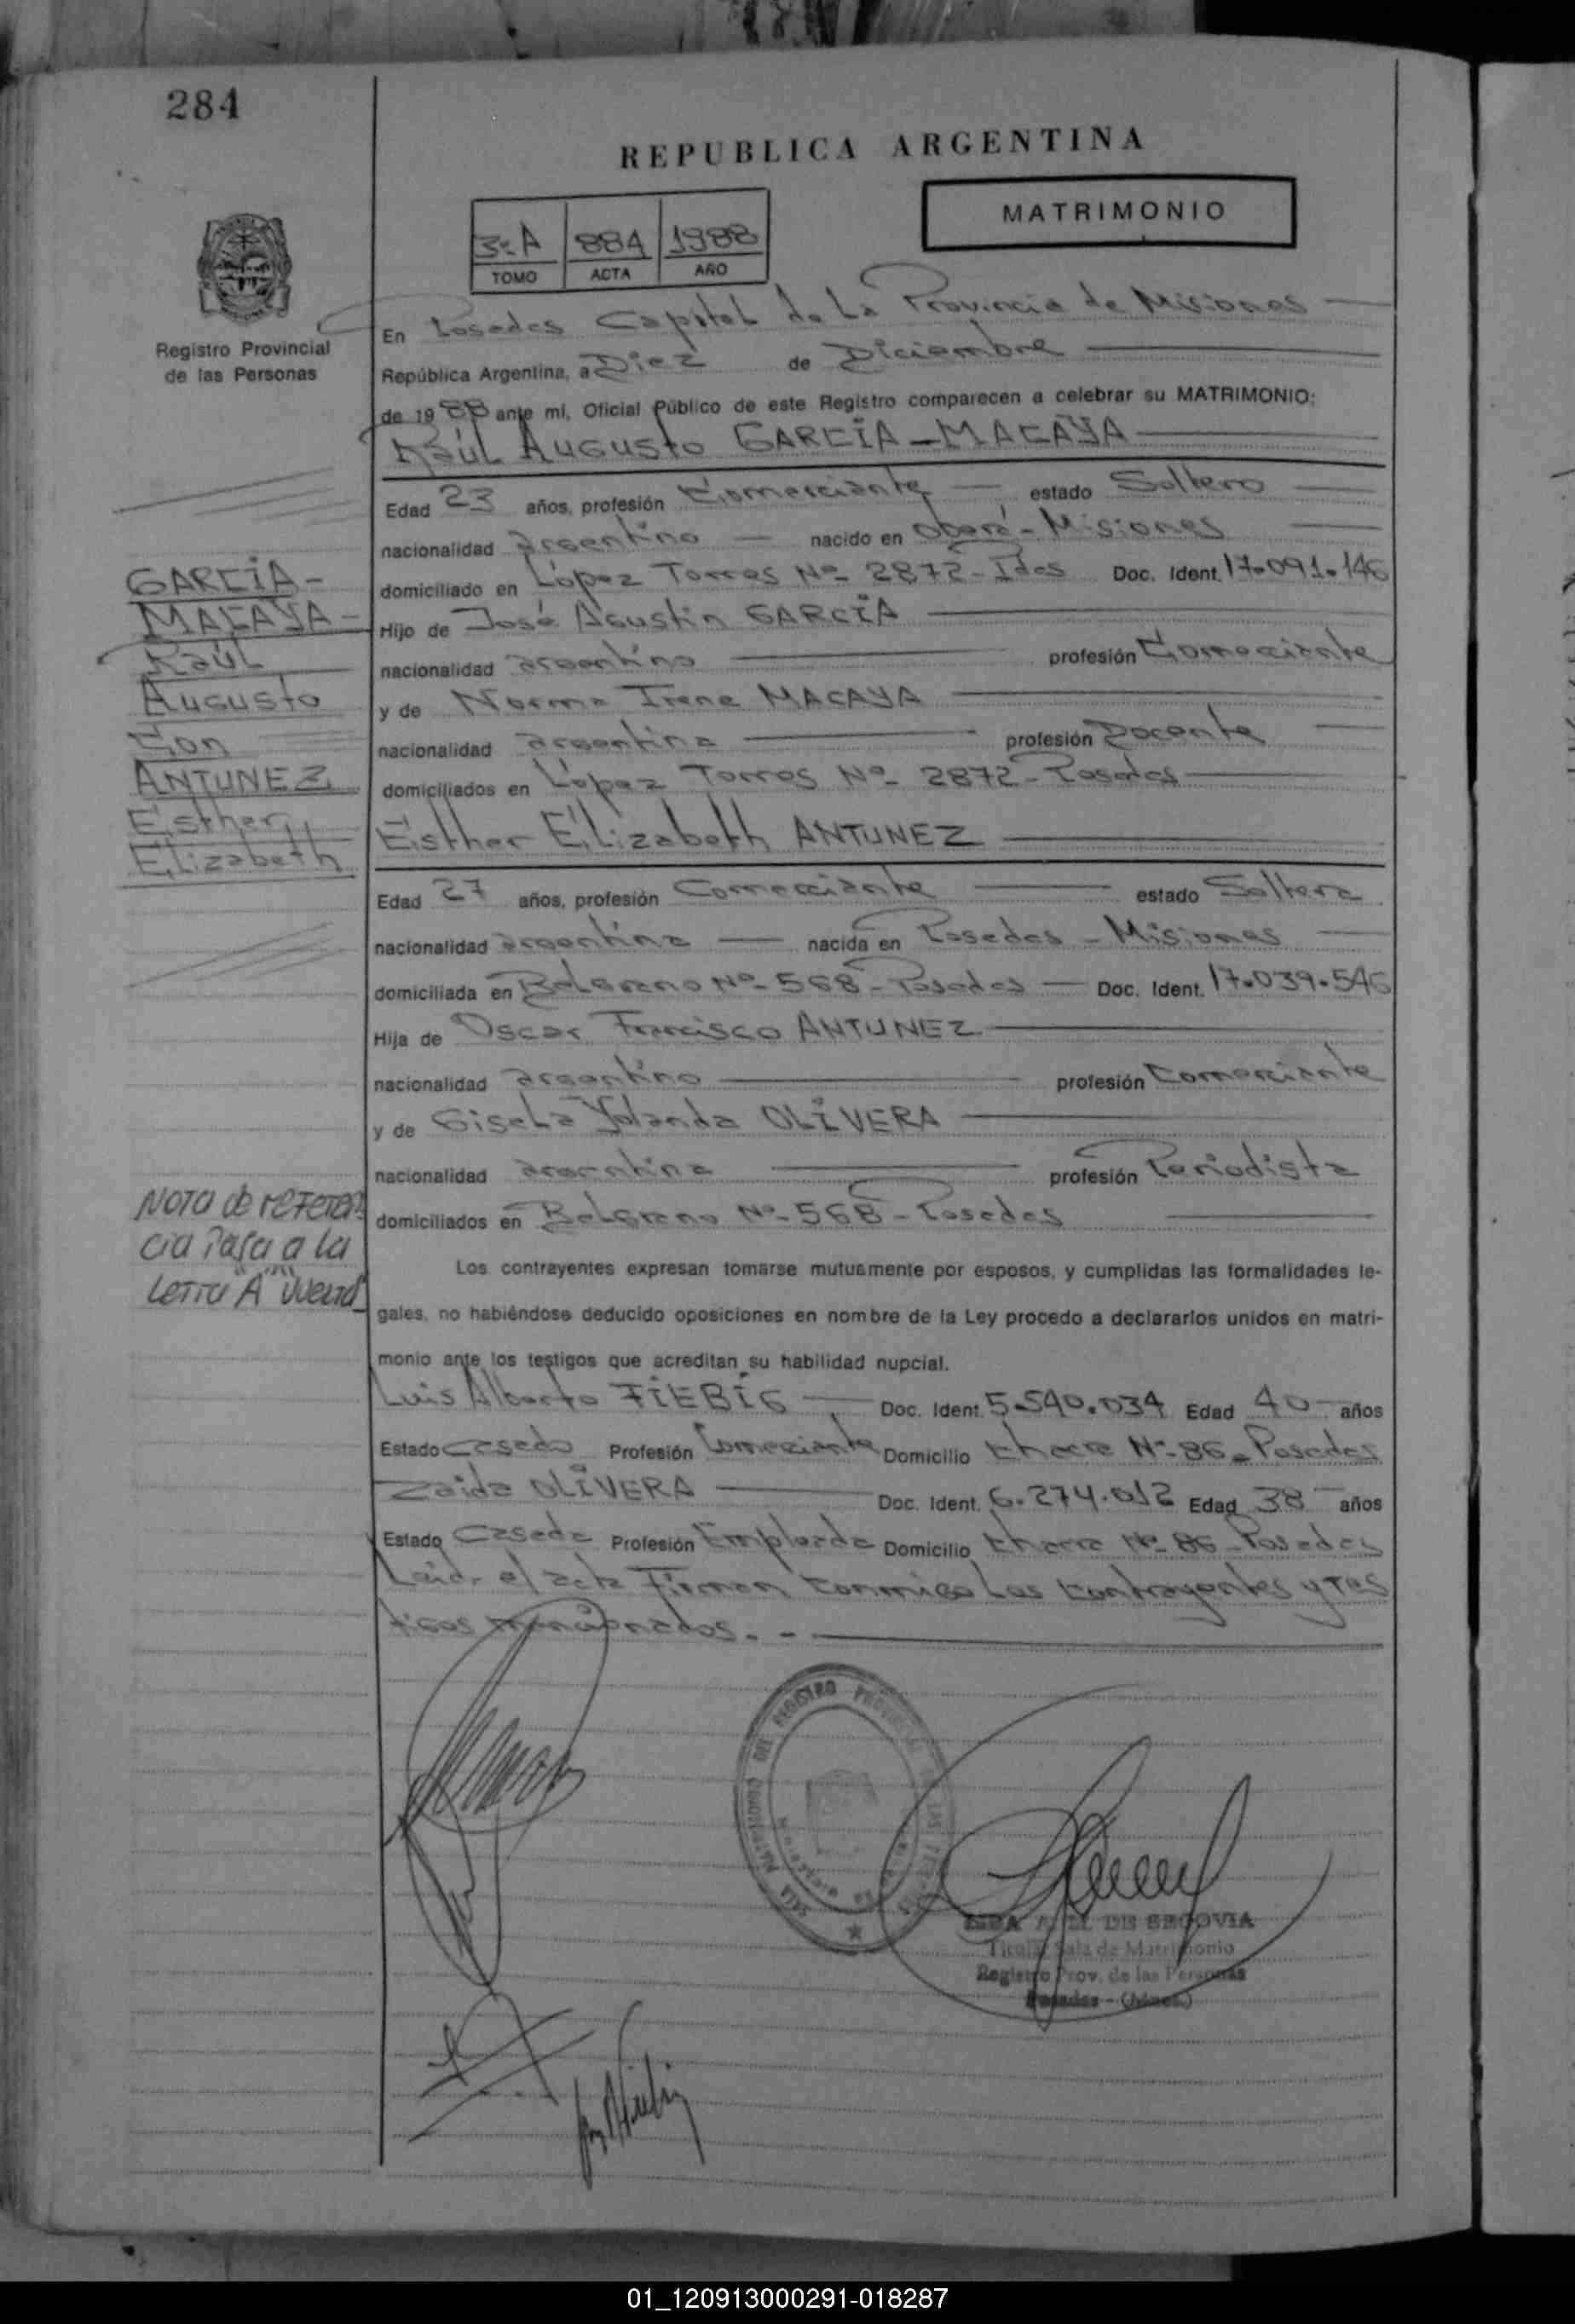 284
REPUBLICA ARGENTINA
MATRIMONIO
3º A 884 1988
TOMO ACTA AÑO
Registro Provincial
de las Personas
En Posadas Capital de La Provincia de Misiones
República Argentina, a Diez de Diciembre
de 1988 ante mi, Oficial Público de este Registro comparecen a celebrar su MATRIMONIO:
Raúl Augusto GARCÍA-MACAYA
Edad 23 años, profesión Comerciante estado Soltero
nacionalidad argentino nacido en Oberá - Misiones
domiciliado en López Torres Nº 2872 - Pdas Doc. Ident. 17.091.146
Hijo de José Agustín GARCÍA
nacionalidad argentino profesión Comerciante
y de Norma Irene MACAYA
nacionalidad argentina profesión Docente
domiciliados en López Torres Nº 2872 - Posadas
Esther Elizabeth ANTUNEZ
Edad 27 años, profesión Comerciante estado Soltera
nacionalidad argentina nacida en Posadas - Misiones
domiciliada en Belgrano Nº 568 - Posadas Doc. Ident. 17.039.546
Hija de Oscar Francisco ANTUNEZ
nacionalidad argentino profesión Comerciante
y de Gisela Yolanda OLIVERA
nacionalidad argentina profesión Periodista
domiciliados en Belgrano Nº 568 - Posadas
Los contrayentes expresan tomarse mutuamente por esposos, y cumplidas las formalidades le-
gales, no habiéndose deducido oposiciones en nombre de la Ley procedo a declararlos unidos en matri-
monio ante los testigos que acreditan su habilidad nupcial.
Luis Alberto FIEBIG Doc. Ident. 5.540.034 Edad 40 años
Estado casado Profesión Comerciante Domicilio Chacra Nº 86 - Posadas
Zaida OLIVERA Doc. Ident. 6.274.012 Edad 38 años
Estado Casada Profesión Empleada Domicilio Chacra Nº 86 - Posadas
Leída el acta Firman conmigo Los contrayentes y tes
tigos mencionados. -
GARCÍA-
MACAYA-
Raúl
Augusto
Con
ANTUNEZ
Esther
Elizabeth
Nota de referen
cia Pasa a la
Letra "A" vuelta
SALA MATRIMONIO DEL REGISTRO PROVINCIAL DE LAS PERSONAS
A. M. DE SEGOVIA
Titular Sala de Matrimonio
Registro Prov. de las Personas
Posadas - (Mnes.)
01_120913000291-018287